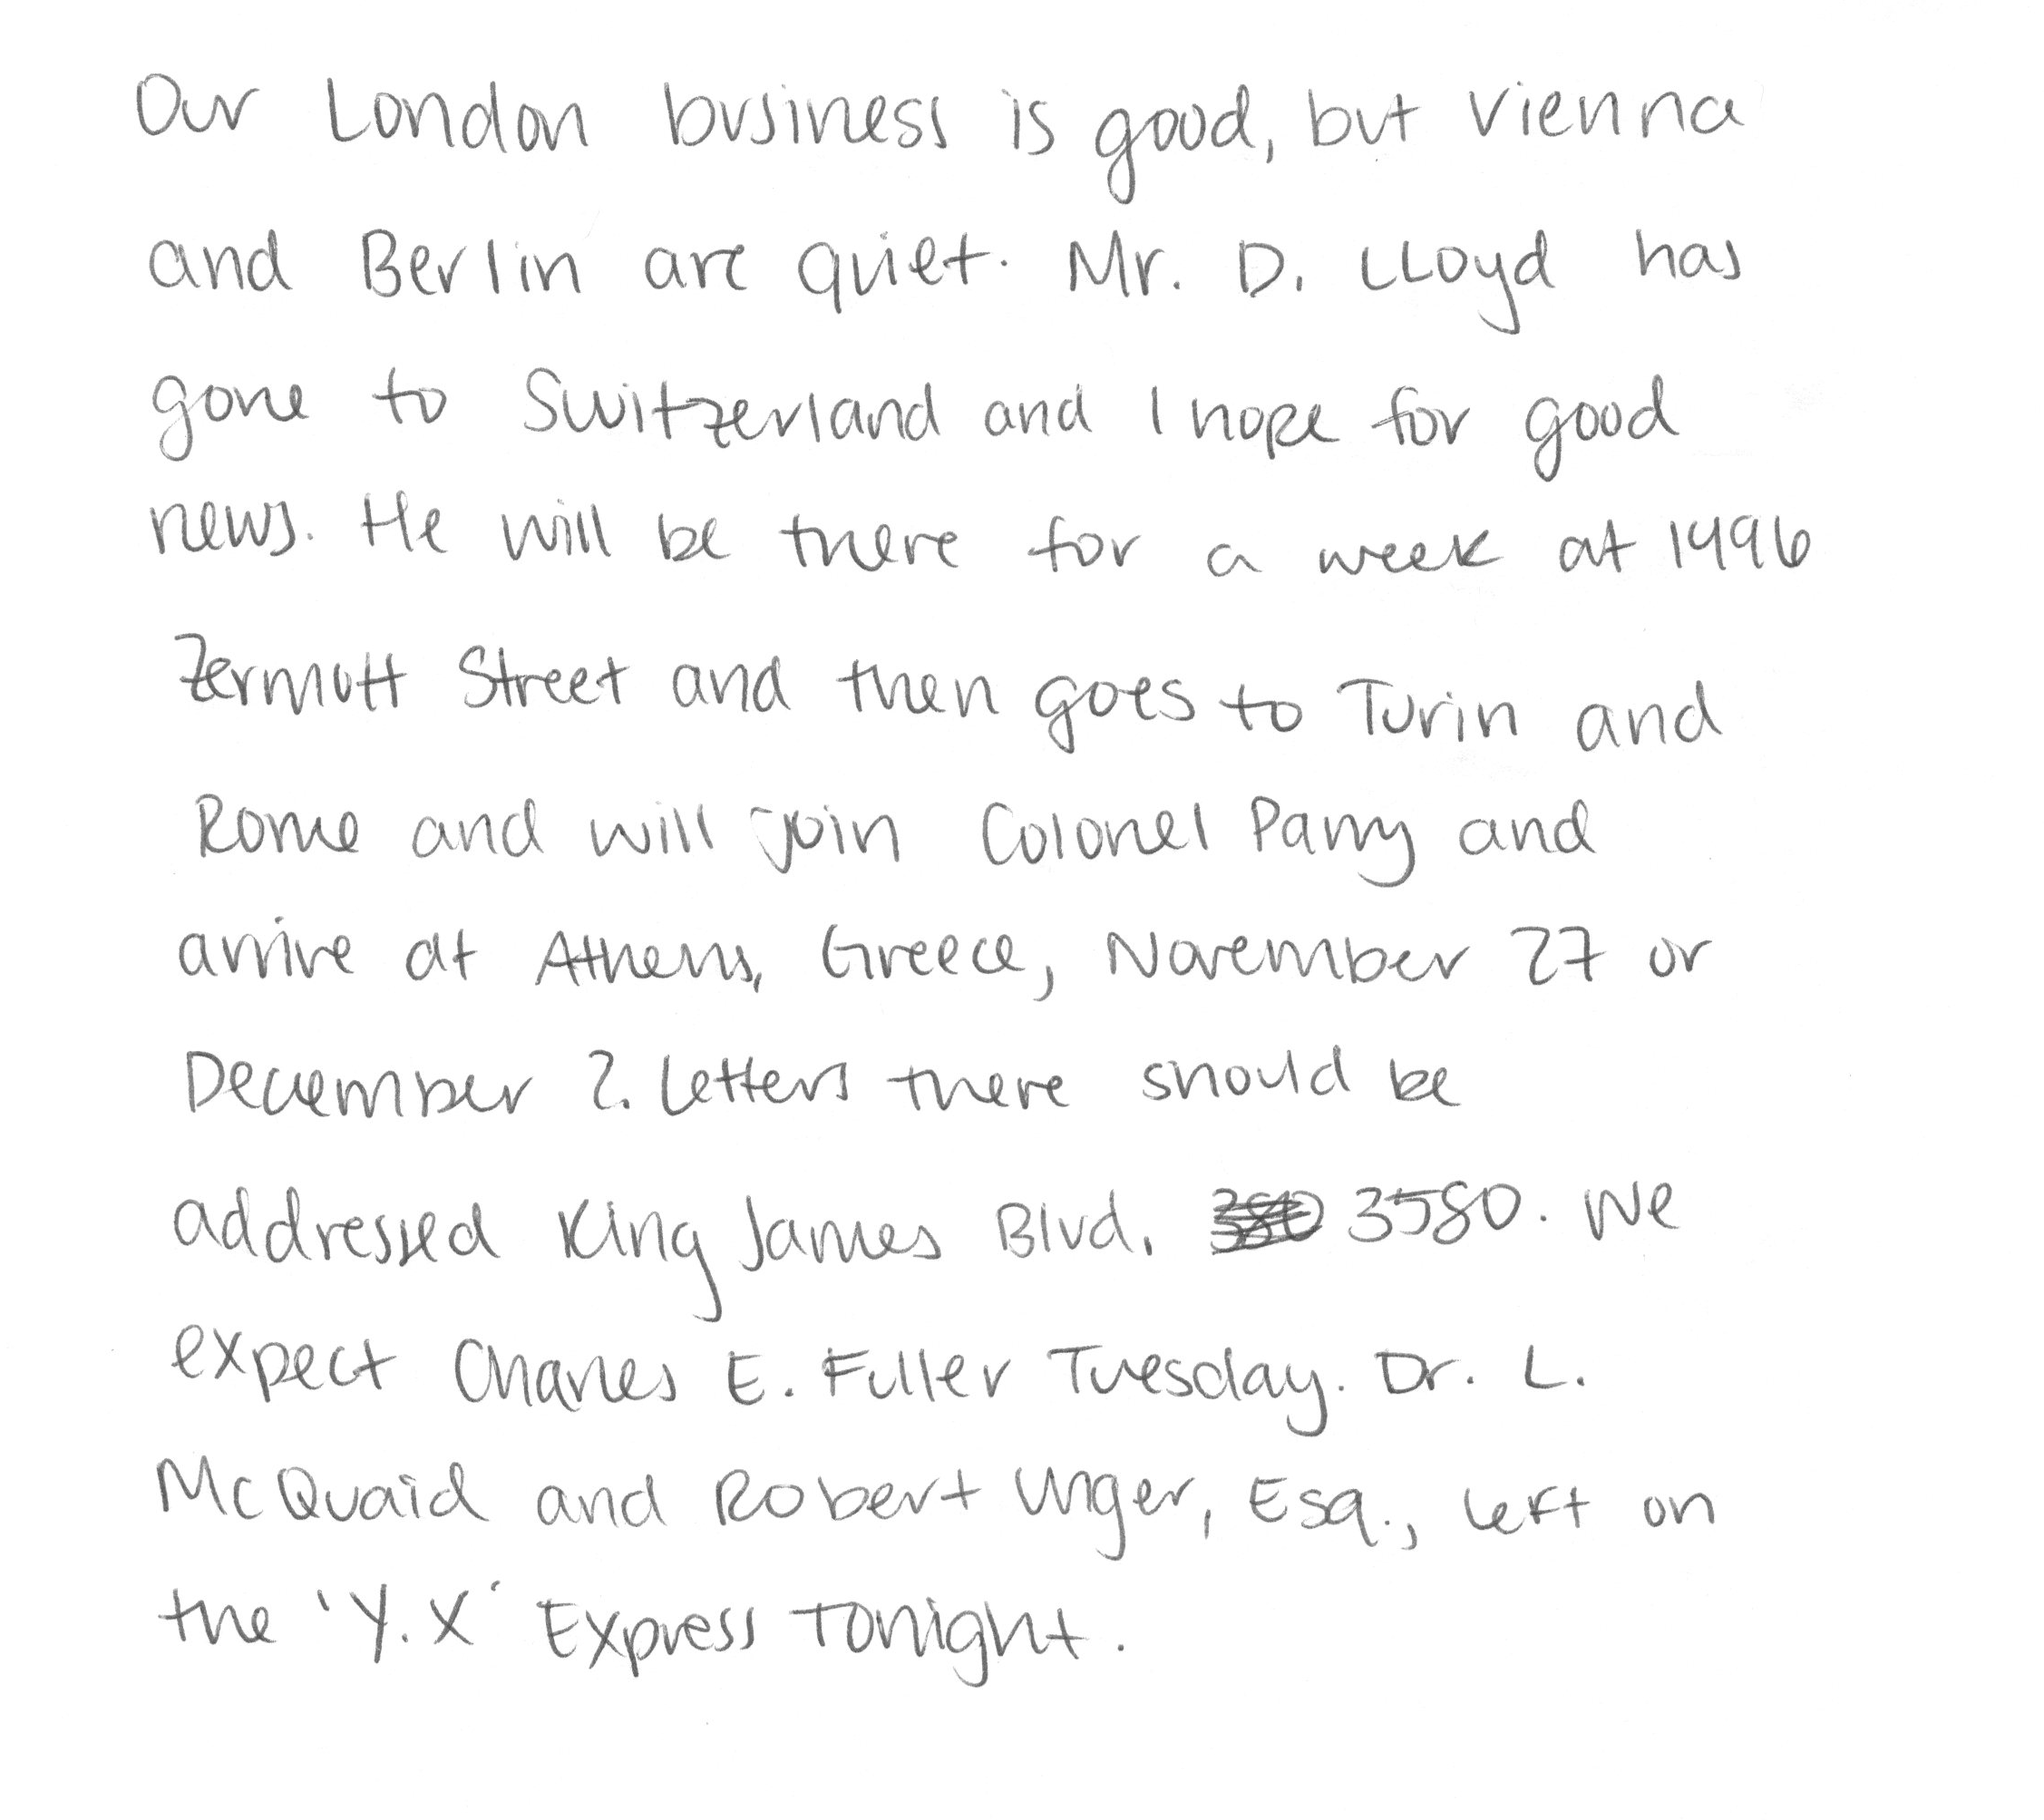 Our London business is good, but Vienna
and Berlin are quiet. Mr. D. Lloyd has
gone to Switzerland and I hope for good
news. He will be there for a week at 1496
Zermott Street and then goes to Turin and
Rome and will join Colonel Parry and
arrive at Athens, Greece, November 27 or
December 2. Letters there should be
addressed King James Blvd. 3580. We
expect Charles E. Fuller Tuesday. Dr. L.
McQuaid and Robert Unger, Esq., left on
the 'Y.X' Express tonight.